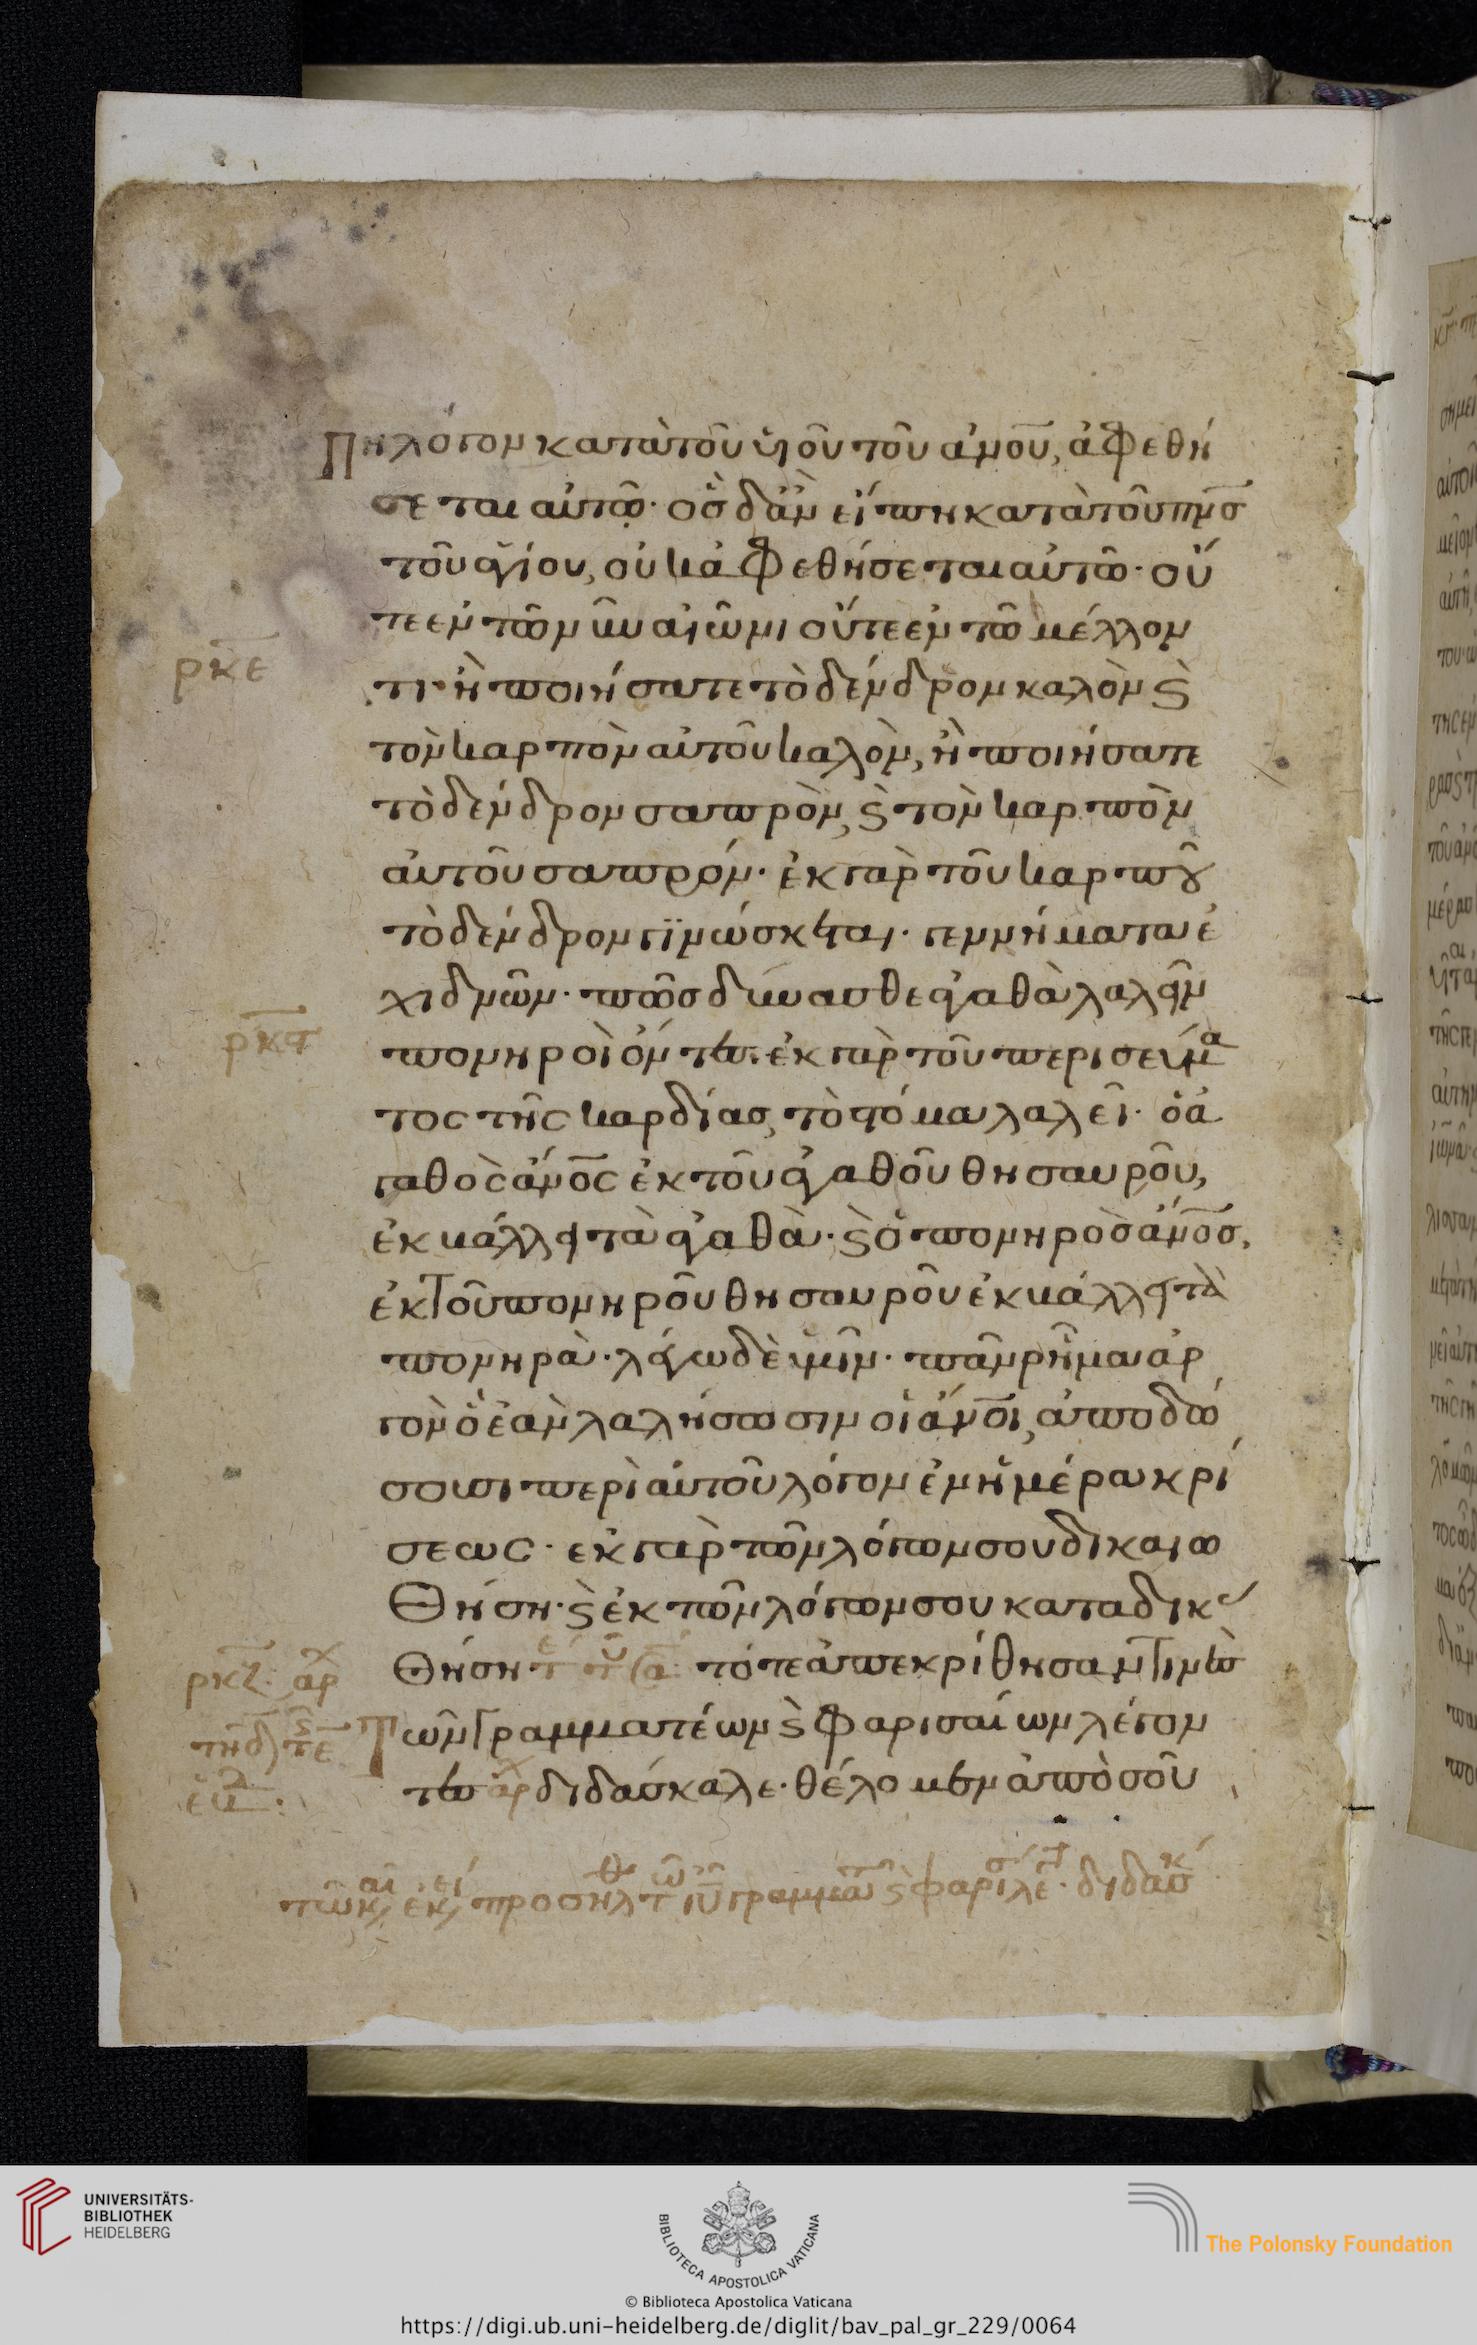 πη λόγον κατὰ τοῦ υἱοῦ τοῦ ἀνου, ἀφεθή
σεται αὐτῶ· ὃς δἂν εἴπη κατὰ τοῦ πνς
τοῦ ἁγίου, οὐκ ἀφεθήσεται αὐτῶ· οὔ
τε ἐν τῶ νῦν αἰῶνι οὔτε ἐν τῶ μέλλον
ρκε
τι· ἢ ποιήσατε τὸ δένδρον καλὸν ϗ
τὸν καρπὸν αὐτοῦ καλὸν, ἢ ποιήσατε
τὸ δένδρον σαπρὸν, ϗ τὸν καρπὸν
αὐτοῦ σαπρόν· ἐκ γὰρ τοῦ καρποῦ
τὸ δένδρον γϊνώσκεται· γεννήματα ἐ
χιδνῶν· πῶς δύνασθε ἀγαθὰ λαλεῖν
ρκϛ
πονηροὶ ὄντες· ἐκ γὰρ τοῦ περισεύμα
τος τῆς καρδίας, τὸ στόμα λαλεῖ· ὁ ἀ
γαθὸς ἄνος ἐκ τοῦ ἀγαθοῦ θησαυροῦ,
ἐκβάλλει τὰ ἀγαθὰ· ϗ ὁ πονηρὸς ἄνος,
ἐκ τοῦ πονηροῦ θησαυροῦ ἐκβάλλει τὰ
πονηρὰ· λέγω δὲ ὑμῖν· πᾶν ρῆμα ἀρ
γὸν ὃ ἐὰν λαλήσωσιν οἱ ἄνοι, ἀποδώ
σουσι περὶ αὐτοῦ λόγον ἐν ἡμέρα κρί
σεως· ἐκ γὰρ τῶν λόγων σου δικαιω
θήση· ϗ ἐκ τῶν λόγων σου καταδικ
ρκζ αρχ
θήση τότε ἀπεκρίθησαν τινὲς
τῶν γραμματέων ϗ φαρισαίων λέγον
τες αρχ διδάσκαλε· θέλομεν ἀπὸ σοῦ
τῶ κ, ἐκ, προσηλθ τ ιυ γραμμα ϗ φαρι λε· διδασκ
UNIVERSITÄTS-
BIBLIOTHEK
HEIDELBERG
BIBLIOTECA APOSTOLICA VATICANA
The Polonsky Foundation
© Biblioteca Apostolica Vaticana
https://digi.ub.uni-heidelberg.de/diglit/bav_pal_gr_229/0064